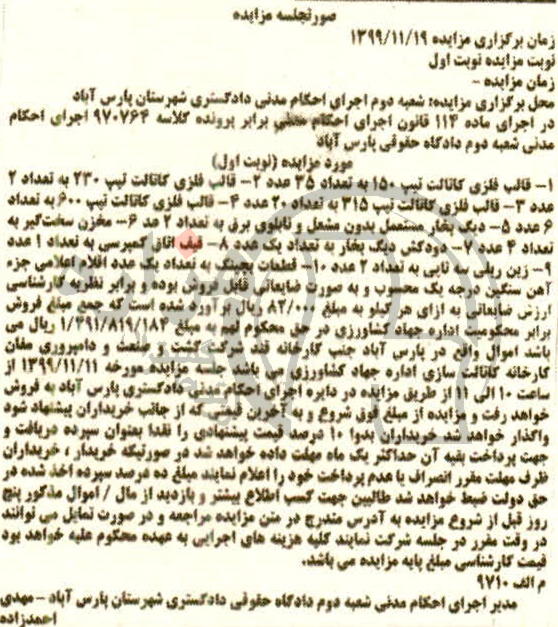 صورتجلسه مزایده
زمان برگزاری مزایده ۱۳۹۹/۱۱/۱۹
نوبت مزایده نوبت اول
زمان مزایده -
محل برگزاری مزایده: شعبه دوم اجرای احکام مدنی دادگستری شهرستان پارس آباد
در اجرای ماده ۱۱۴ قانون اجرای احکام مدنی برابر پرونده کلاسه ۹۷۰۷۶۴ اجرای احکام
مدنی شعبه دوم دادگاه حقوقی پارس آباد
مورد مزایده (نوبت اول)
۱- قالب فلزی کاناکت تیپ ۱۵۰ به تعداد ۳۵ عدد ۲- قالب فلزی کانالت تیپ ۲۳۰ به تعداد ۲
عدد ۳- قالب فلزی کانالت تیپ ۳۱۵ به تعداد ۲۰ عدد ۴- قالب فلزی کانالت تیپ ۶۰۰ به تعداد
۶ عدد ۵- دیگ بخار مستعمل بدون مشعل و تابلوی برق به تعداد ۲ عد ۶- مخزن سخت‌گیر به
تعداد ۴ عدد ۷- دودکش دیگ بخار به تعداد یک عدد ۸- قیف اتاق کمپرسی به تعداد ۱ عدد
۹- زین ریلی سه تایی به تعداد ۲ عدد ۱۰- قطعات بچینگ به تعداد یک عدد اقلام اعلامی جزء
آهن سنگین درجه یک محسوب و به صورت ضایعاتی قابل فروش بوده و برابر نظریه کارشناسی
ارزش ضایعاتی به ازای هر کیلو به مبلغ ۸۲/۰۰۰ ریال برآورد شده است که جمع مبلغ فروش
برابر محکومیت اداره جهاد کشاورزی در حق محکوم لهم به مبلغ ۱/۴۹۱/۸۱۹/۱۸۴ ریال می
باشد اموال واقع در پارس آباد جنب کارخانه قند شرکت کشت و صنعت و دامپروری مغان
کارخانه کانالت سازی اداره جهاد کشاورزی می باشد جلسه مزایده مورخه ۱۳۹۹/۱۱/۱۱ از
ساعت ۱۰ الی ۱۱ از طریق مزایده در دایره اجرای احکام مدنی دادگستری پارس آباد به فروش
خواهد رفت و مزایده از مبلغ فوق شروع و به آخرین قیمتی که از جانب خریداران پیشنهاد شود
واگذار خواهد شد خریداران بدوا ۱۰ درصد قیمت پیشنهادی را نقدا بعنوان سپرده دریافت و
جهت پرداخت بقیه آن حداکثر یک ماه مهلت داده خواهد شد در صورتیکه خریدار ، خریداران
ظرف مهلت مقرر انصراف یا عدم پرداخت خود را اعلام نمایند مبلغ ده درصد سپرده اخذ شده در
حق دولت ضبط خواهد شد طالبین جهت کسب اطلاع بیشتر و بازدید از مال / اموال مذکور پنج
روز قبل از شروع مزایده به آدرس مندرج در متن مزایده مراجعه و در صورت تمایل می توانند
در وقت مقرر در جلسه شرکت نمایند کلیه هزینه های اجرایی به عهده محکوم علیه خواهد بود
قیمت کارشناسی مبلغ پایه مزایده می باشد.
م الف ۹۷۱۰
مدیر اجرای احکام مدنی شعبه دوم دادگاه حقوقی دادگستری شهرستان پارس آباد - مهدی
احمدزاده